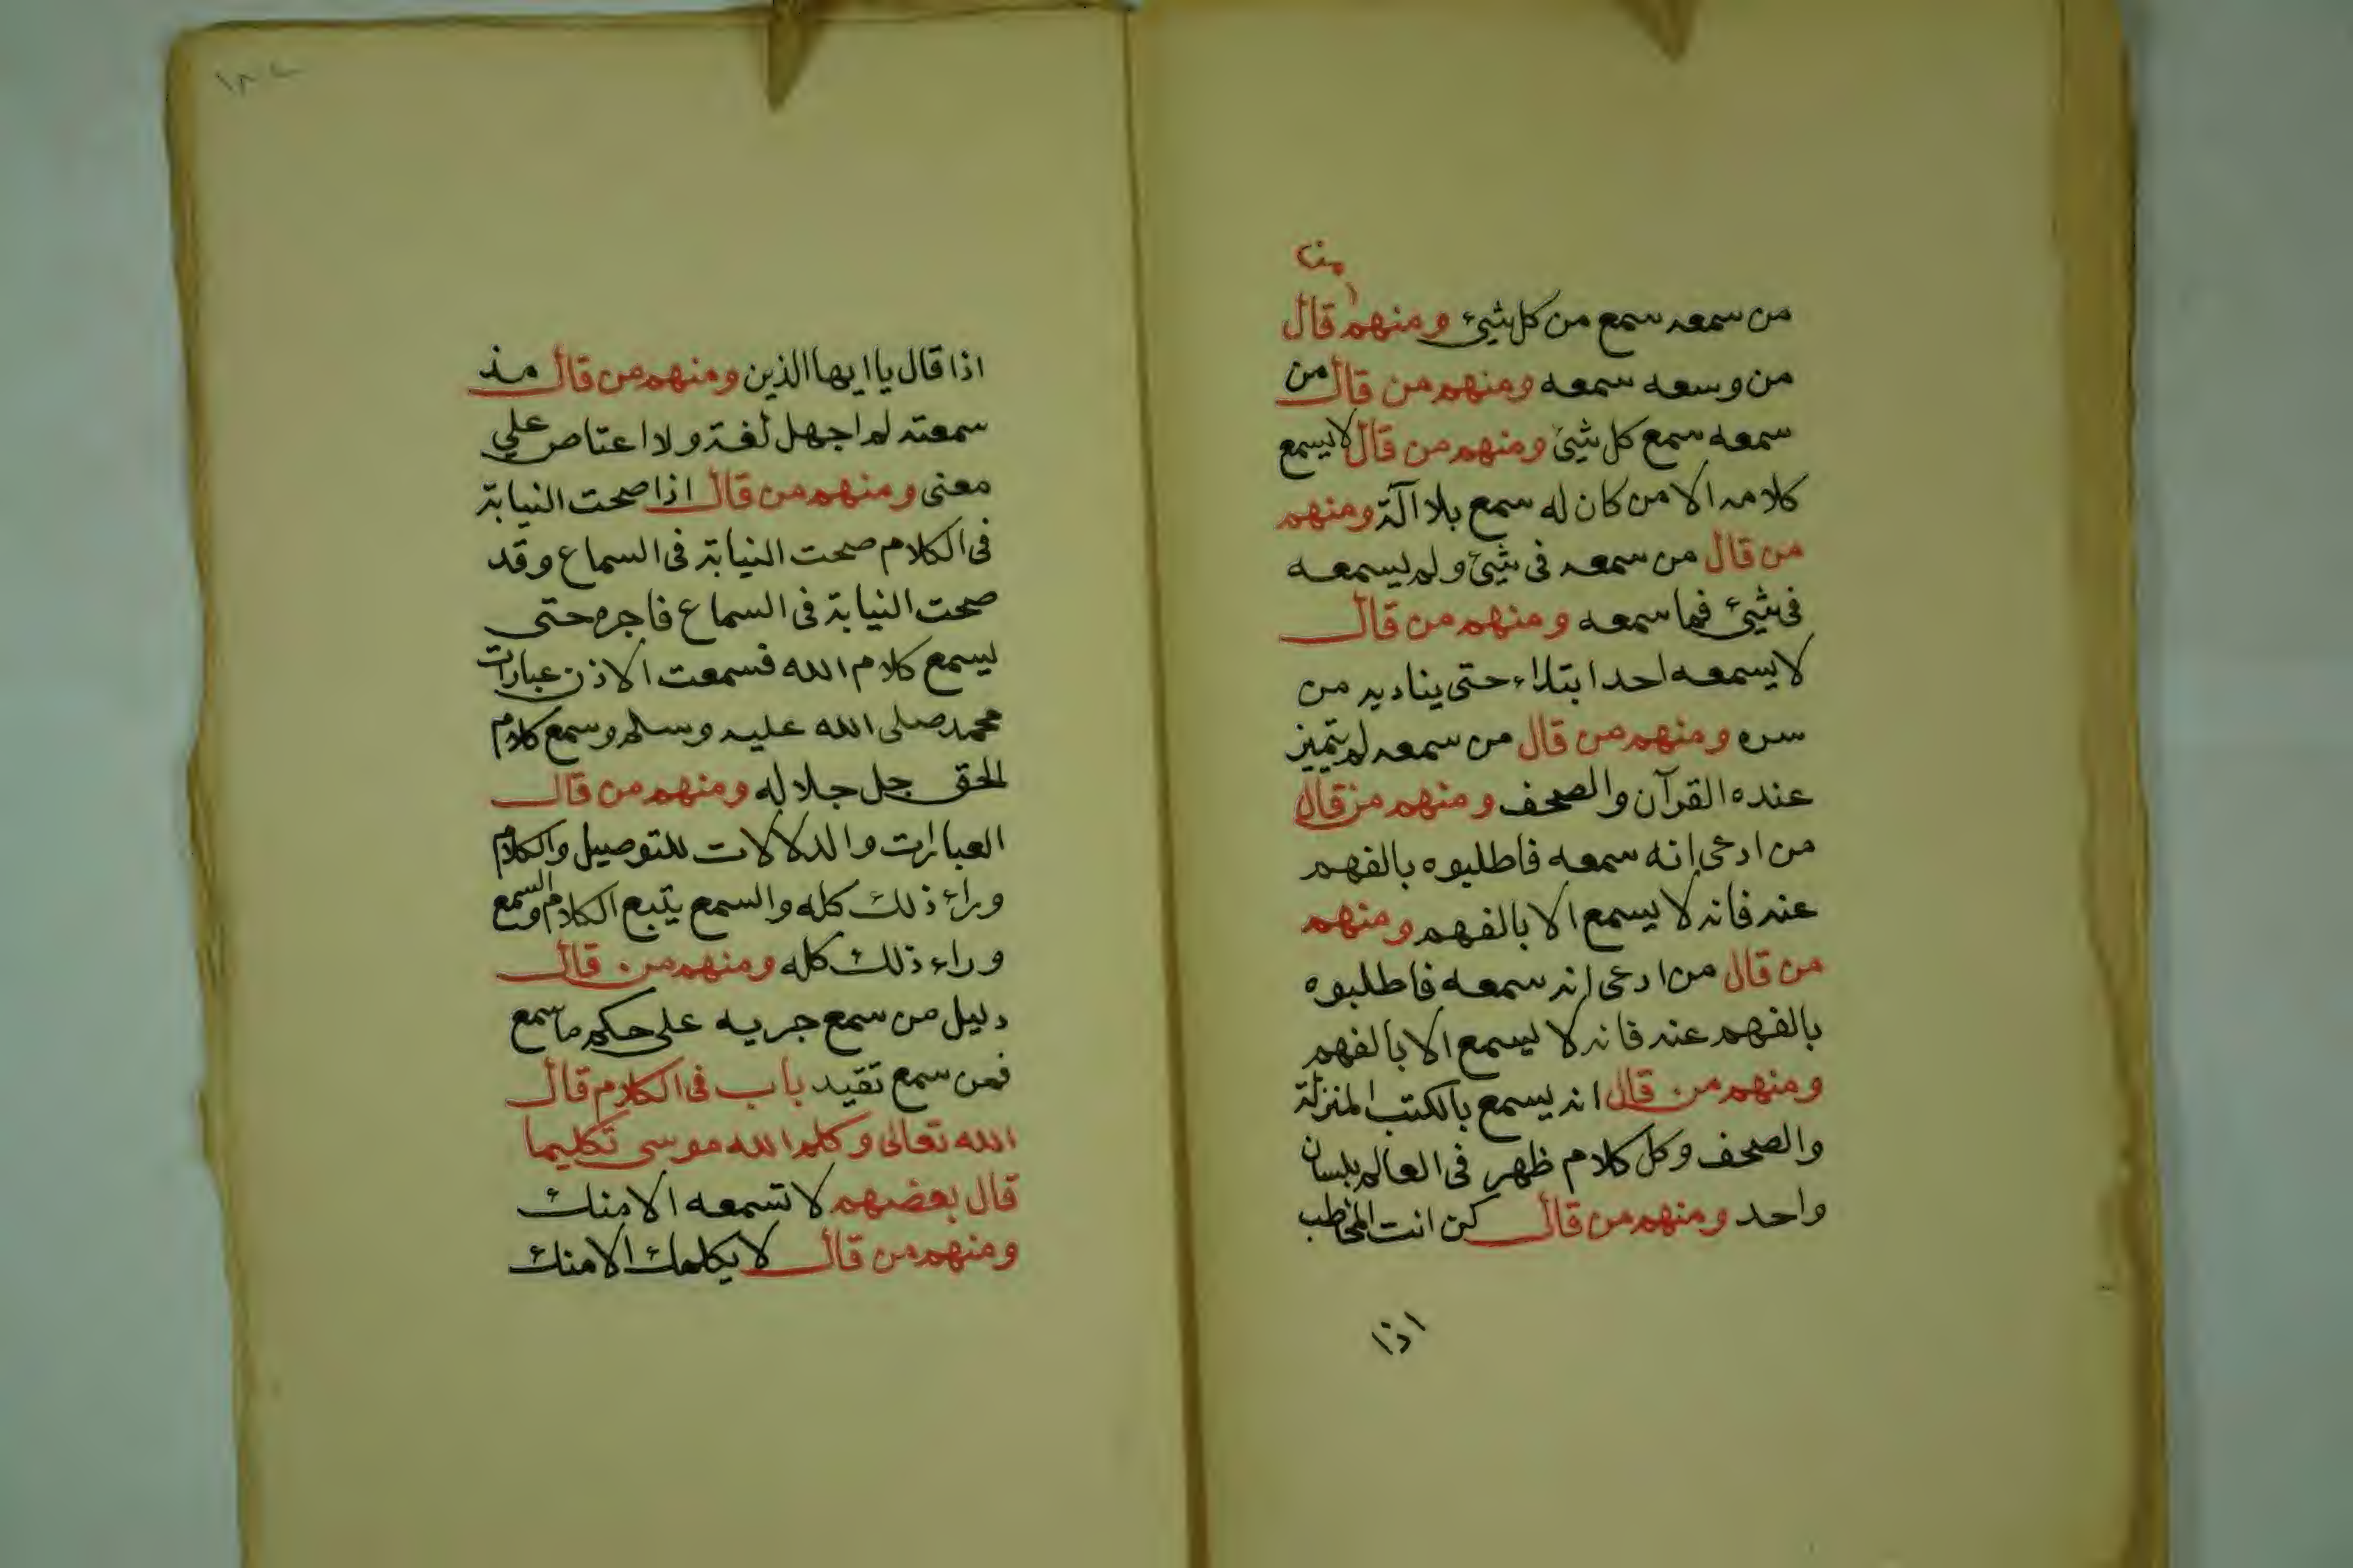 من
من سمعه سمع من كل شيئ ومنهم قال
من وسعه سمعه ومنهم من قال من
سمعه سمع كل شيئ ومنهم من قال لا يسمع
كلامه الا من كان له سمع بلا آلة ومنهم
من قال من سمعه فى شيئ ولم يسمعه
فى شيئ فما سمعه ومنهم من قال
لا يسمعه احد ابتداء حتى يناديه من
سره ومنهم من قال من سمعه لم يتميز
عنده القرآن والصحف ومنهم من قال
من ادعى انه سمعه فاطلبوه بالفهم
عنه فانه لا يسمع الا بالفهم ومنهم
من قال من ادعى انه سمعه فاطلبوه
بالفهم عنه فانه لا يسمع الا بالفهم
ومنهم من قال انه يسمع بالكتب المنزلة
والصحف وكل كلام ظهر فى العالم بلسان
واحد ومنهم من قال كن انت المخاطب
اذا
اذا قال يا ايها الذين ومنهم من قال مذ
سمعته لم اجهل لغة ولا اعتاص علي
معنى ومنهم من قال اذا صحت النيابة
فى الكلام صحت النيابة فى السماع وقد
صحت النيابة فى السماع فاجره حتى
يسمع كلام الله فسمعت الاذن عبارات
محمد صلى الله عليه وسلم وسمع كلام
الحق جل جلاله ومنهم من قال
العبارات والدلالات للتوصيل والكلام
وراء ذلك كله والسمع يتبع الكلام والسمع
وراء ذلك كله ومنهم من قال
دليل من سمع جريه على حكم ما سمع
فمن سمع تقيد باب فى الكلام قال
الله تعالى وكلم الله موسى تكليما
قال بعضهم لا تسمعه الا منك
ومنهم من قال لا يكلمك الا منك